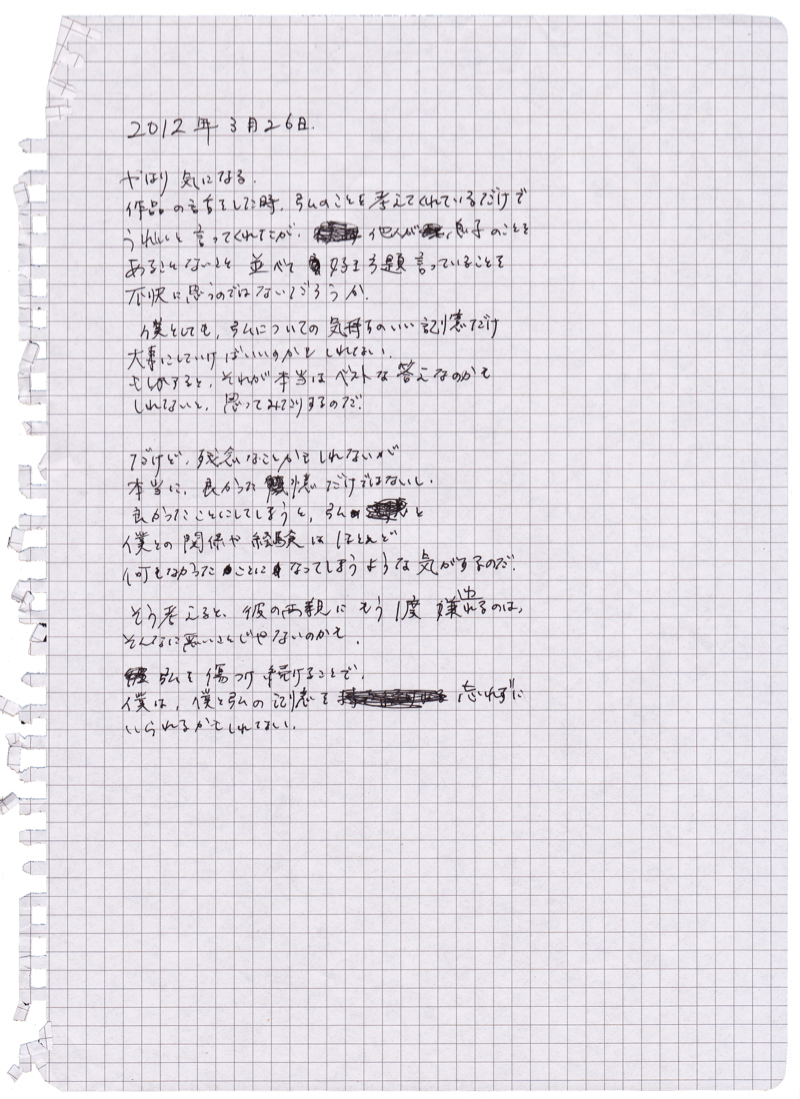 2012年3月26日.
やはり 気になる.
作品の話をした時、弘のことを考えてくれているだけで
うれしいと言ってくれてたが、他人が 息子のことを
あることないこと 並べて 好き放題言っていることを
不快に思うのではないだろうか.
僕としても、弘についての気持ちのいい記憶だけ
大事にしていけばいいのかもしれない.
もしかすると、それが本当はベストな答えなのかも
しれないと、思ってみたりするのだ.
だけど、残念なことかもしれないが
本当に、良かった 憶だけではないし.
良かったことにしてしまうと、弘 と
僕との関係や経験はほとんど
何もなかったことになってしまうような気がするのだ.
そう考えると、彼の両親にもう1度 嫌われるのは,
そんなに悪いことじゃないのかも.
弘を傷つけ続けることで、
僕は、僕と弘の記憶を 忘れずに
いられるかもしれない.